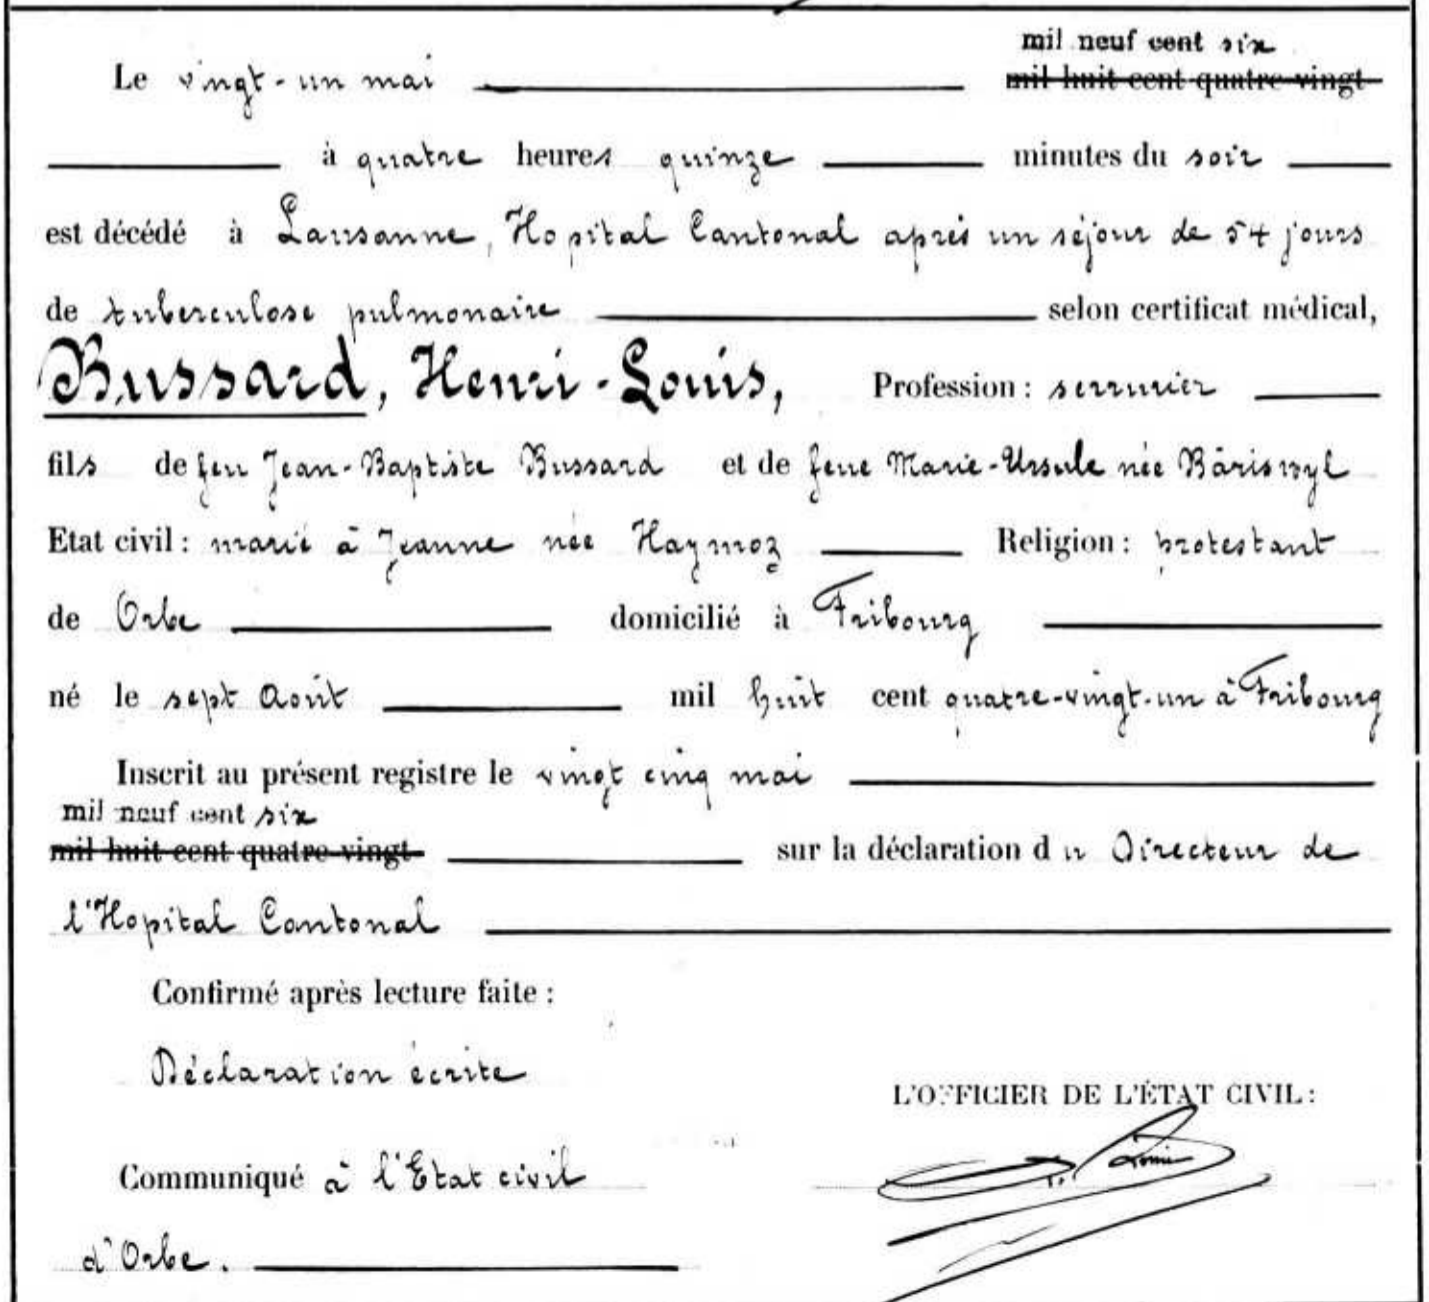 mil neuf cent six
Le vingt-un mai mil huit cent quatre-vingt
à quatre heures quinze minutes du soir
est décédé à Lausanne, Hopital Cantonal après un séjour de 54 jours
de tuberculose pulmonaire selon certificat médical,
Bussard, Henri-Louis, Profession : serrurier
fils de feu Jean-Baptiste Bussard et de feue Marie-Ursule née Bäriswyl
Etat civil : marié à Jeanne née Haymoz Religion : protestant
de Orbe domicilié à Fribourg
né le sept Août mil huit cent quatre-vingt-un à Fribourg
Inscrit au présent registre le vingt cinq mai
mil neuf cent six
mil huit cent quatre-vingt sur la déclaration du Directeur de
l'Hopital Cantonal
Confirmé après lecture faite :
Déclaration écrite
L'OFFICIER DE L'ÉTAT CIVIL :
Communiqué à l'Etat civil
d'Orbe.